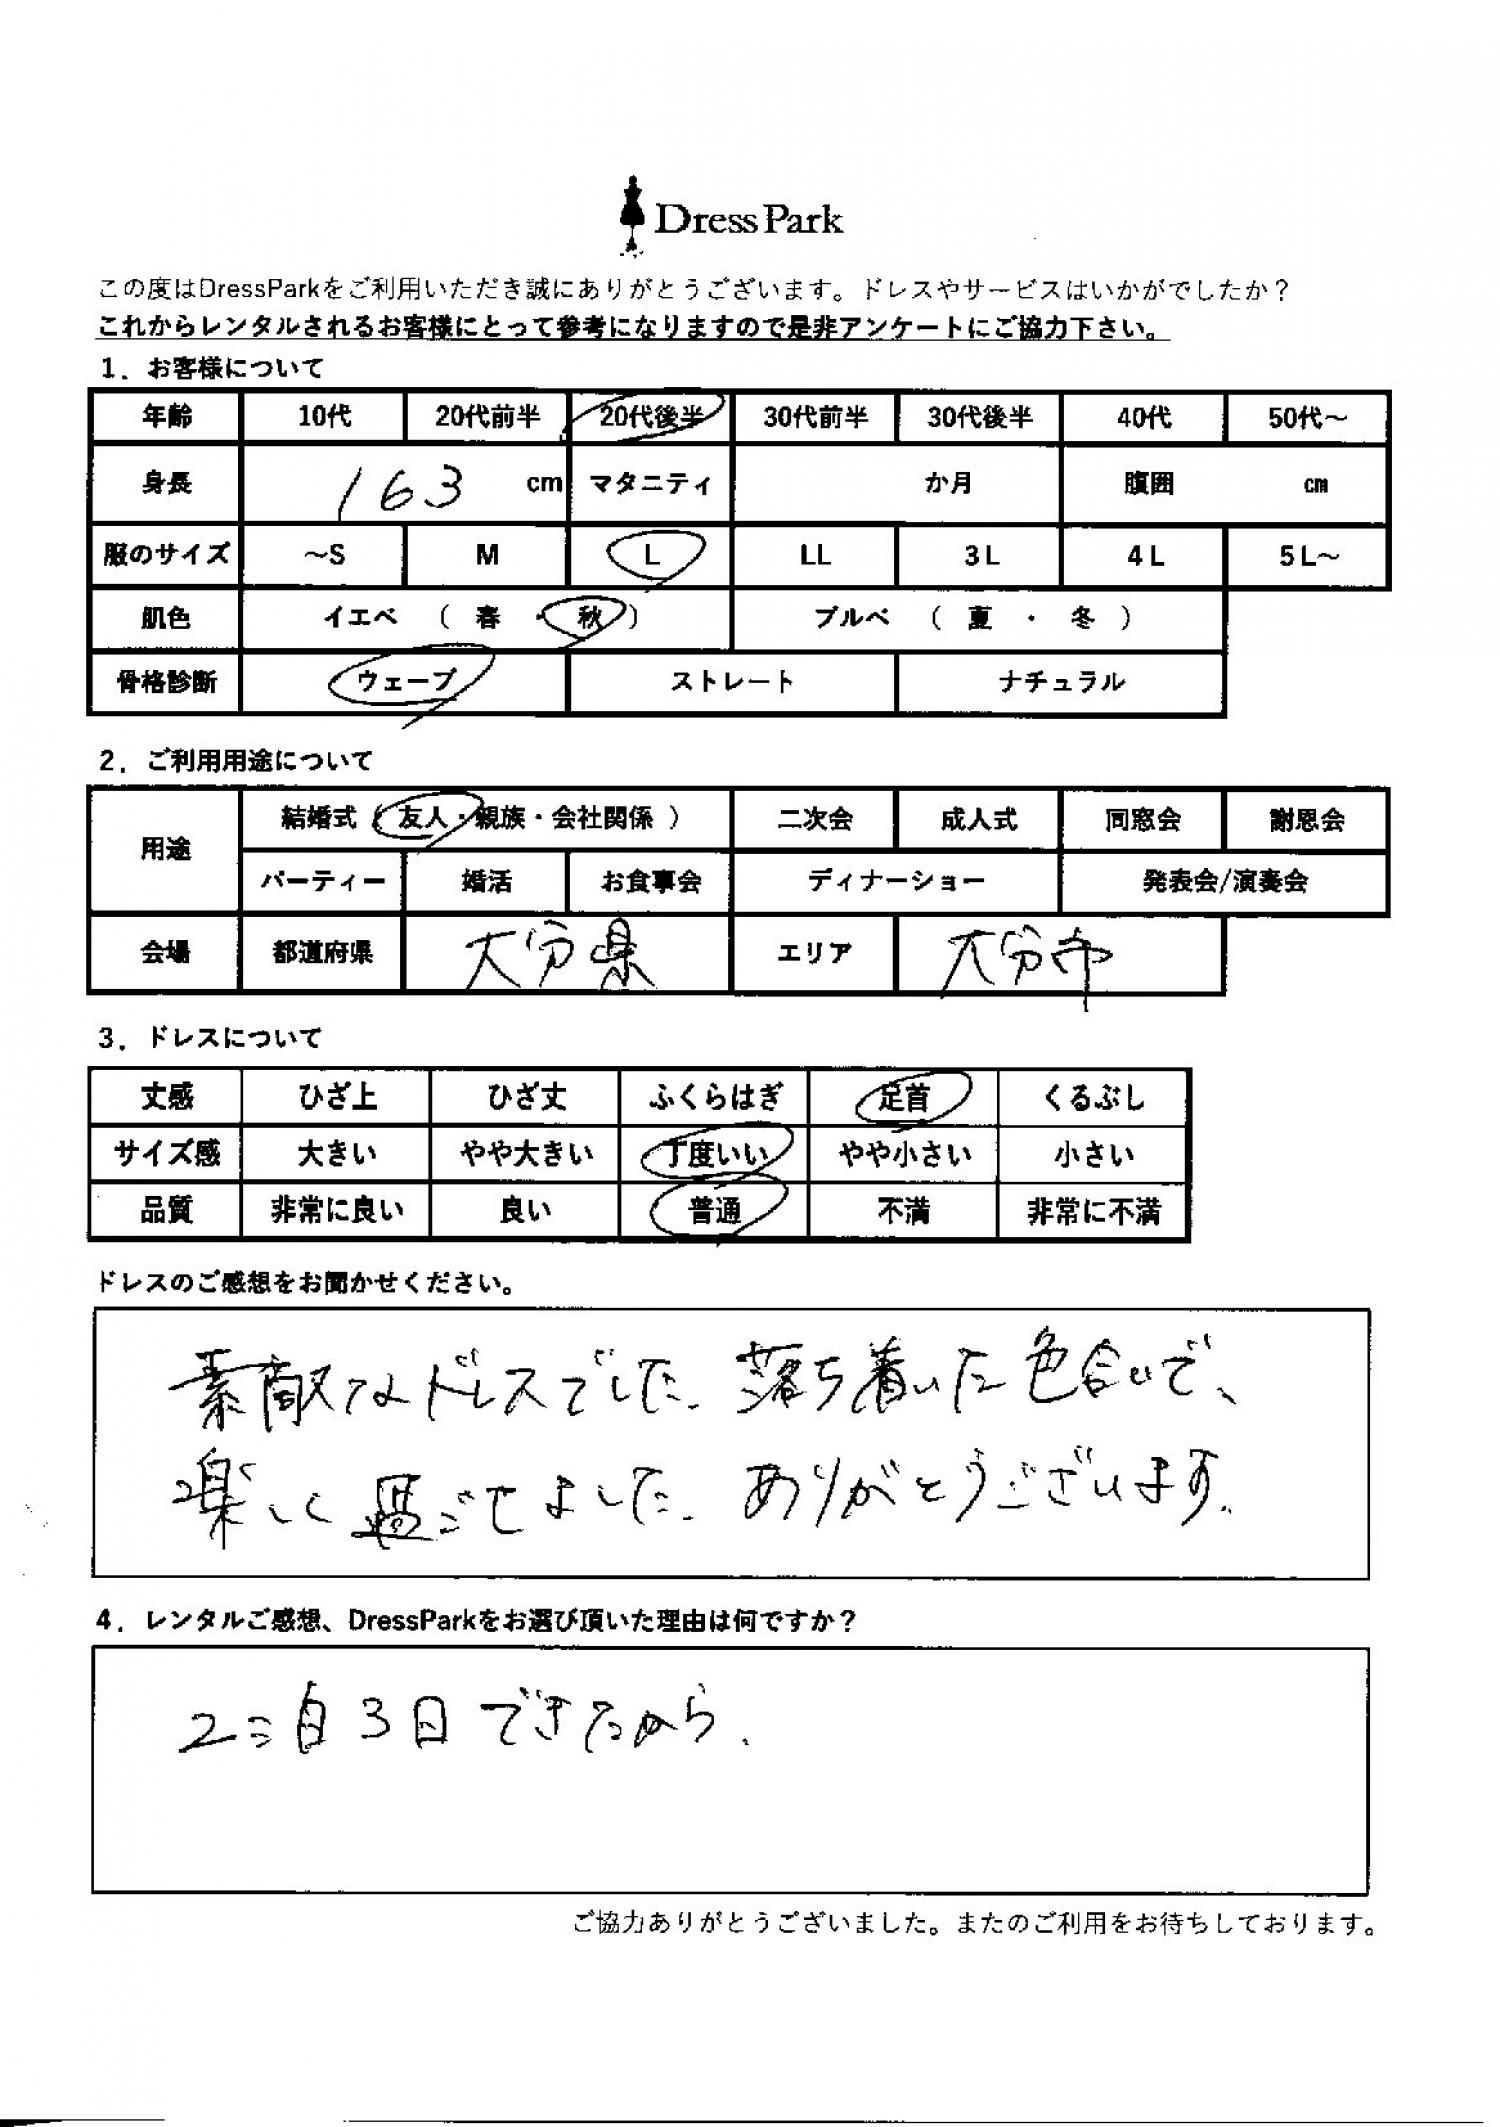 Dress Park
この度はDressParkをご利用いただき誠にありがとうございます。ドレスやサービスはいかがでしたか？
これからレンタルされるお客様にとって参考になりますので是非アンケートにご協力下さい。
1．お客様について
年齢 10代 20代前半 20代後半 30代前半 30代後半 40代 50代～
身長 163 cm マタニティ か月 腹囲 cm
服のサイズ ～S M L LL 3L 4L 5L～
肌色 イエベ （ 春 ・ 秋 ） ブルベ （ 夏 ・ 冬 ）
骨格診断 ウェーブ ストレート ナチュラル
2．ご利用用途について
用途 結婚式（ 友人・親族・会社関係 ） 二次会 成人式 同窓会 謝恩会
パーティー 婚活 お食事会 ディナーショー 発表会/演奏会
会場 都道府県 大分県 エリア 大分市
3．ドレスについて
丈感 ひざ上 ひざ丈 ふくらはぎ 足首 くるぶし
サイズ感 大きい やや大きい 丁度いい やや小さい 小さい
品質 非常に良い 良い 普通 不満 非常に不満
ドレスのご感想をお聞かせください。
素敵なドレスでした。落ち着いた色合いで、
楽しく過ごせました。ありがとうございます。
4．レンタルご感想、DressParkをお選び頂いた理由は何ですか？
2泊3日できたから。
ご協力ありがとうございました。またのご利用をお待ちしております。